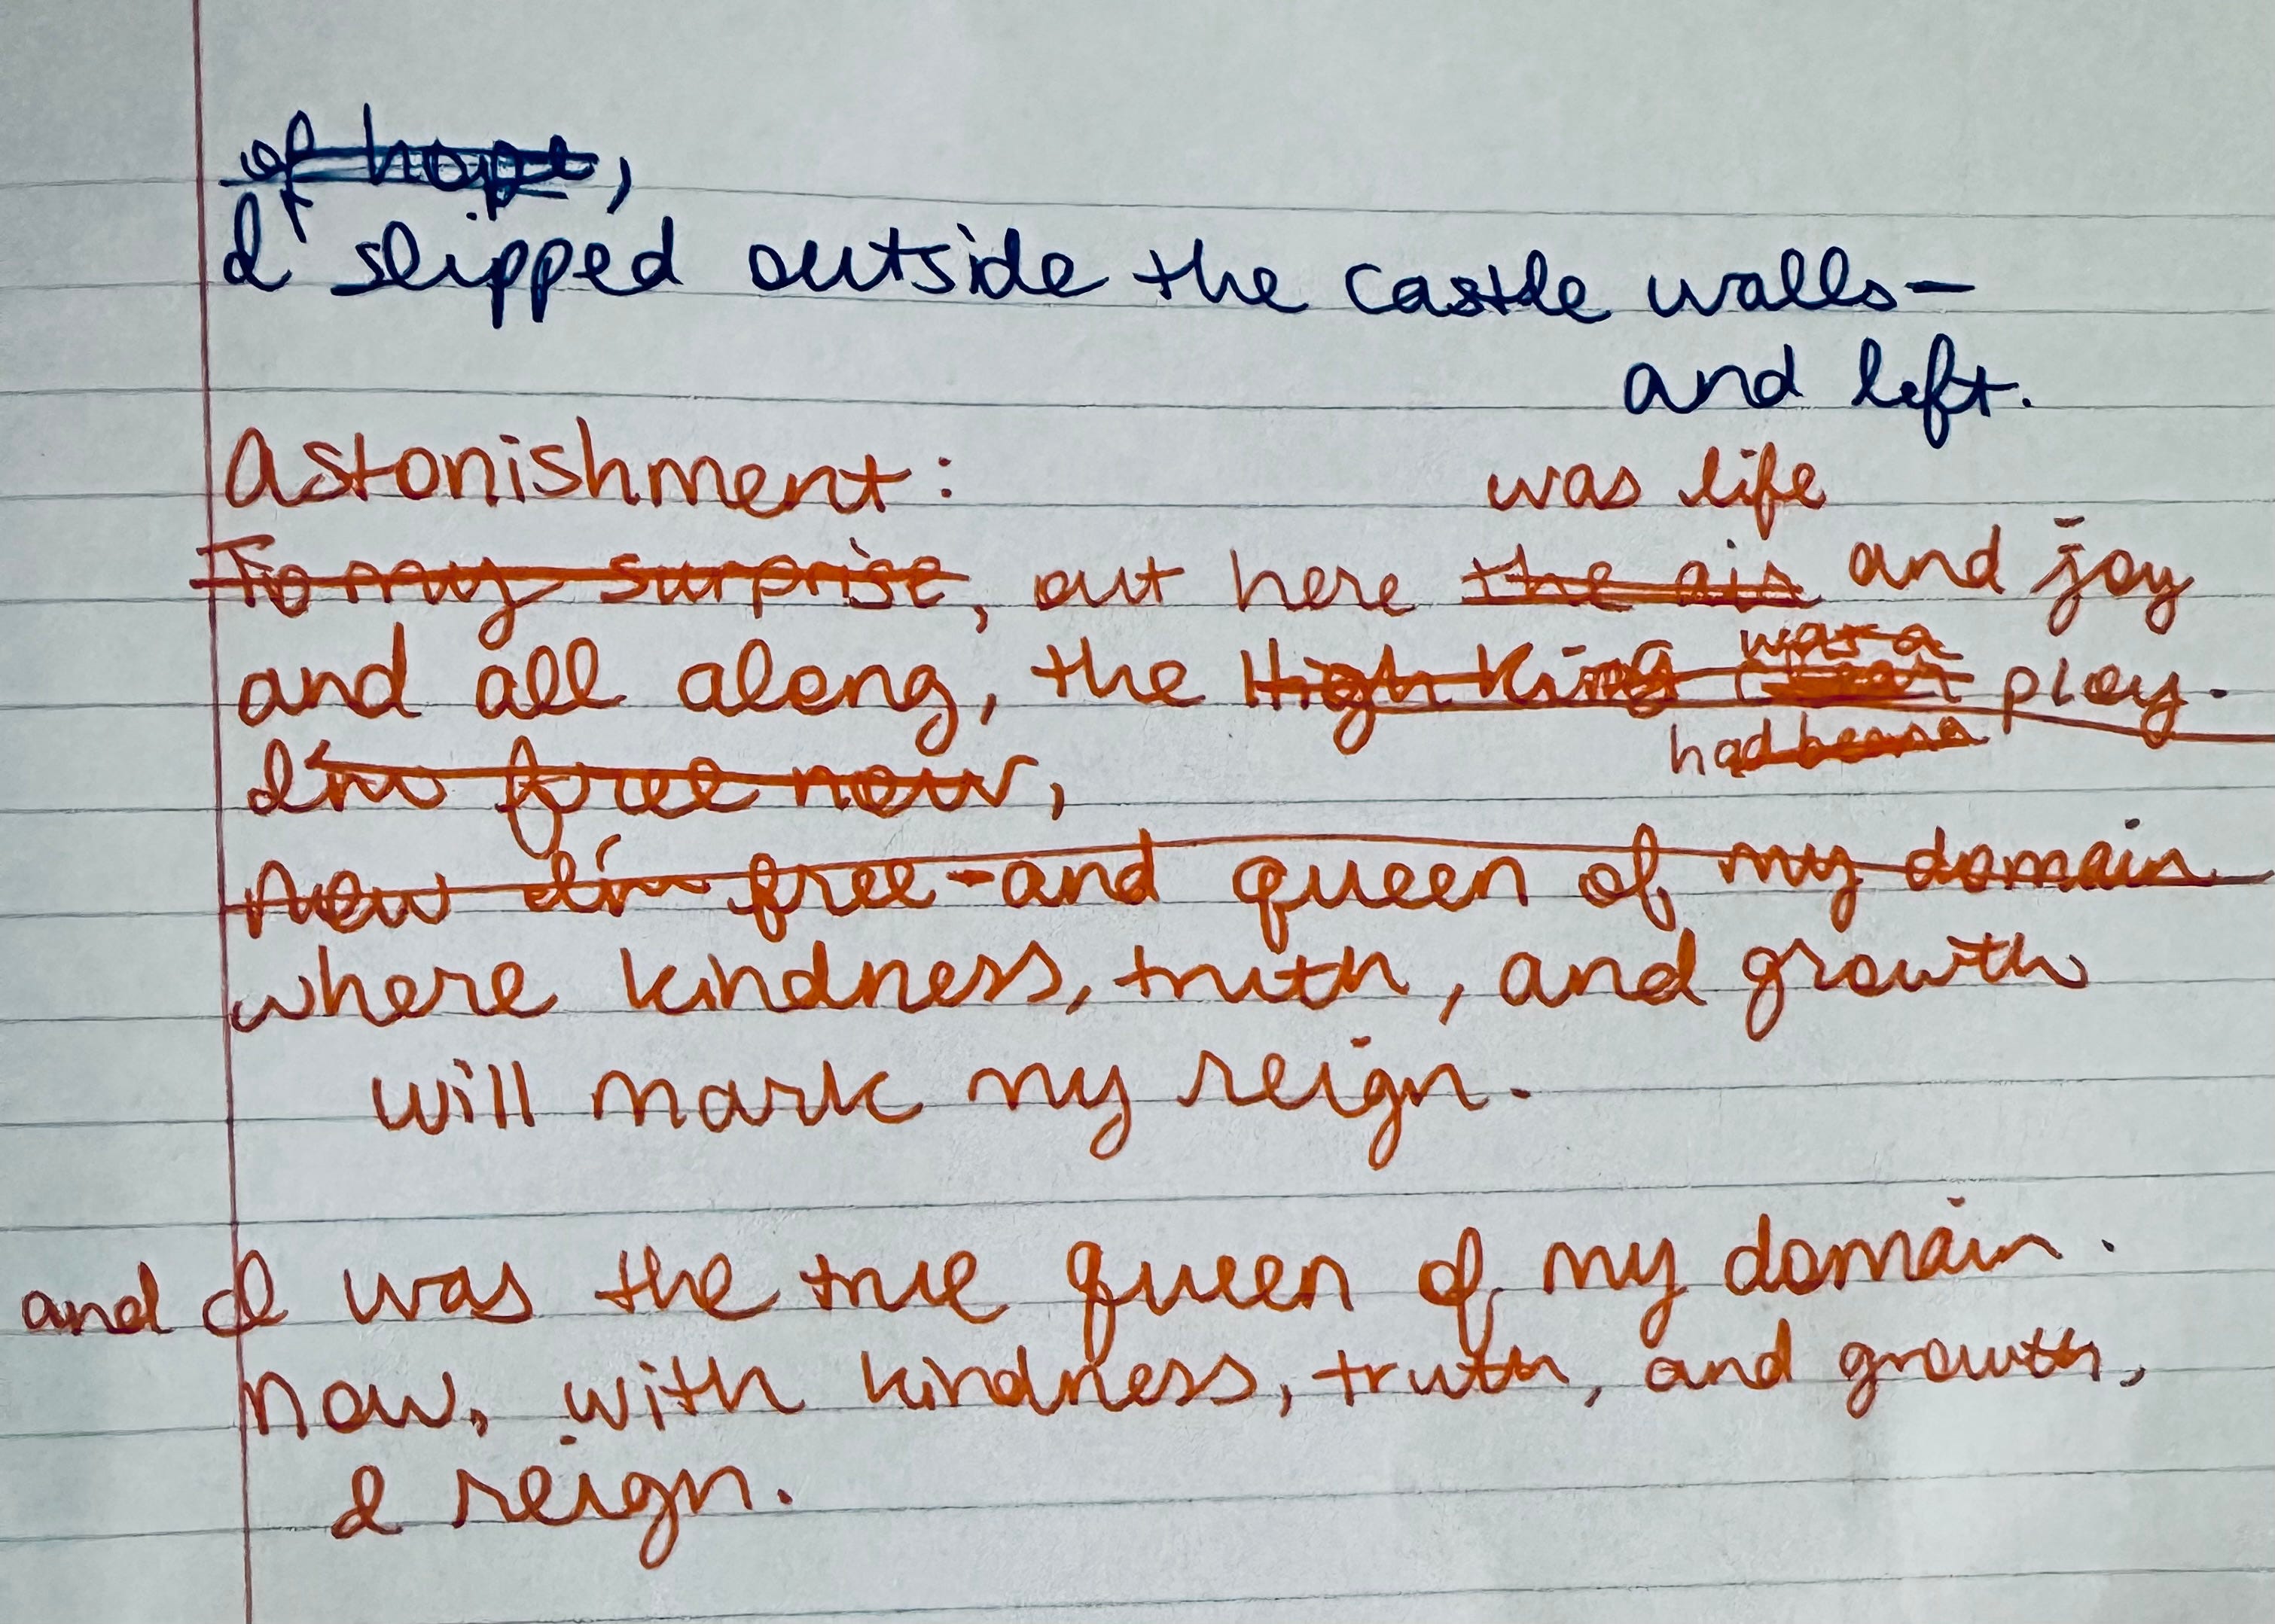 of hope,
I slipped outside the castle walls—
and left.
Astonishment:
was life
To my surprise, out here the air and joy
was a
and all along, the High King ploy.
had been a
I'm free now,
Now I'm free - and queen of my domain
where kindness, truth, and growth
will mark my reign.
and I was the true queen of my domain.
Now, with kindness, truth, and growth,
I reign.